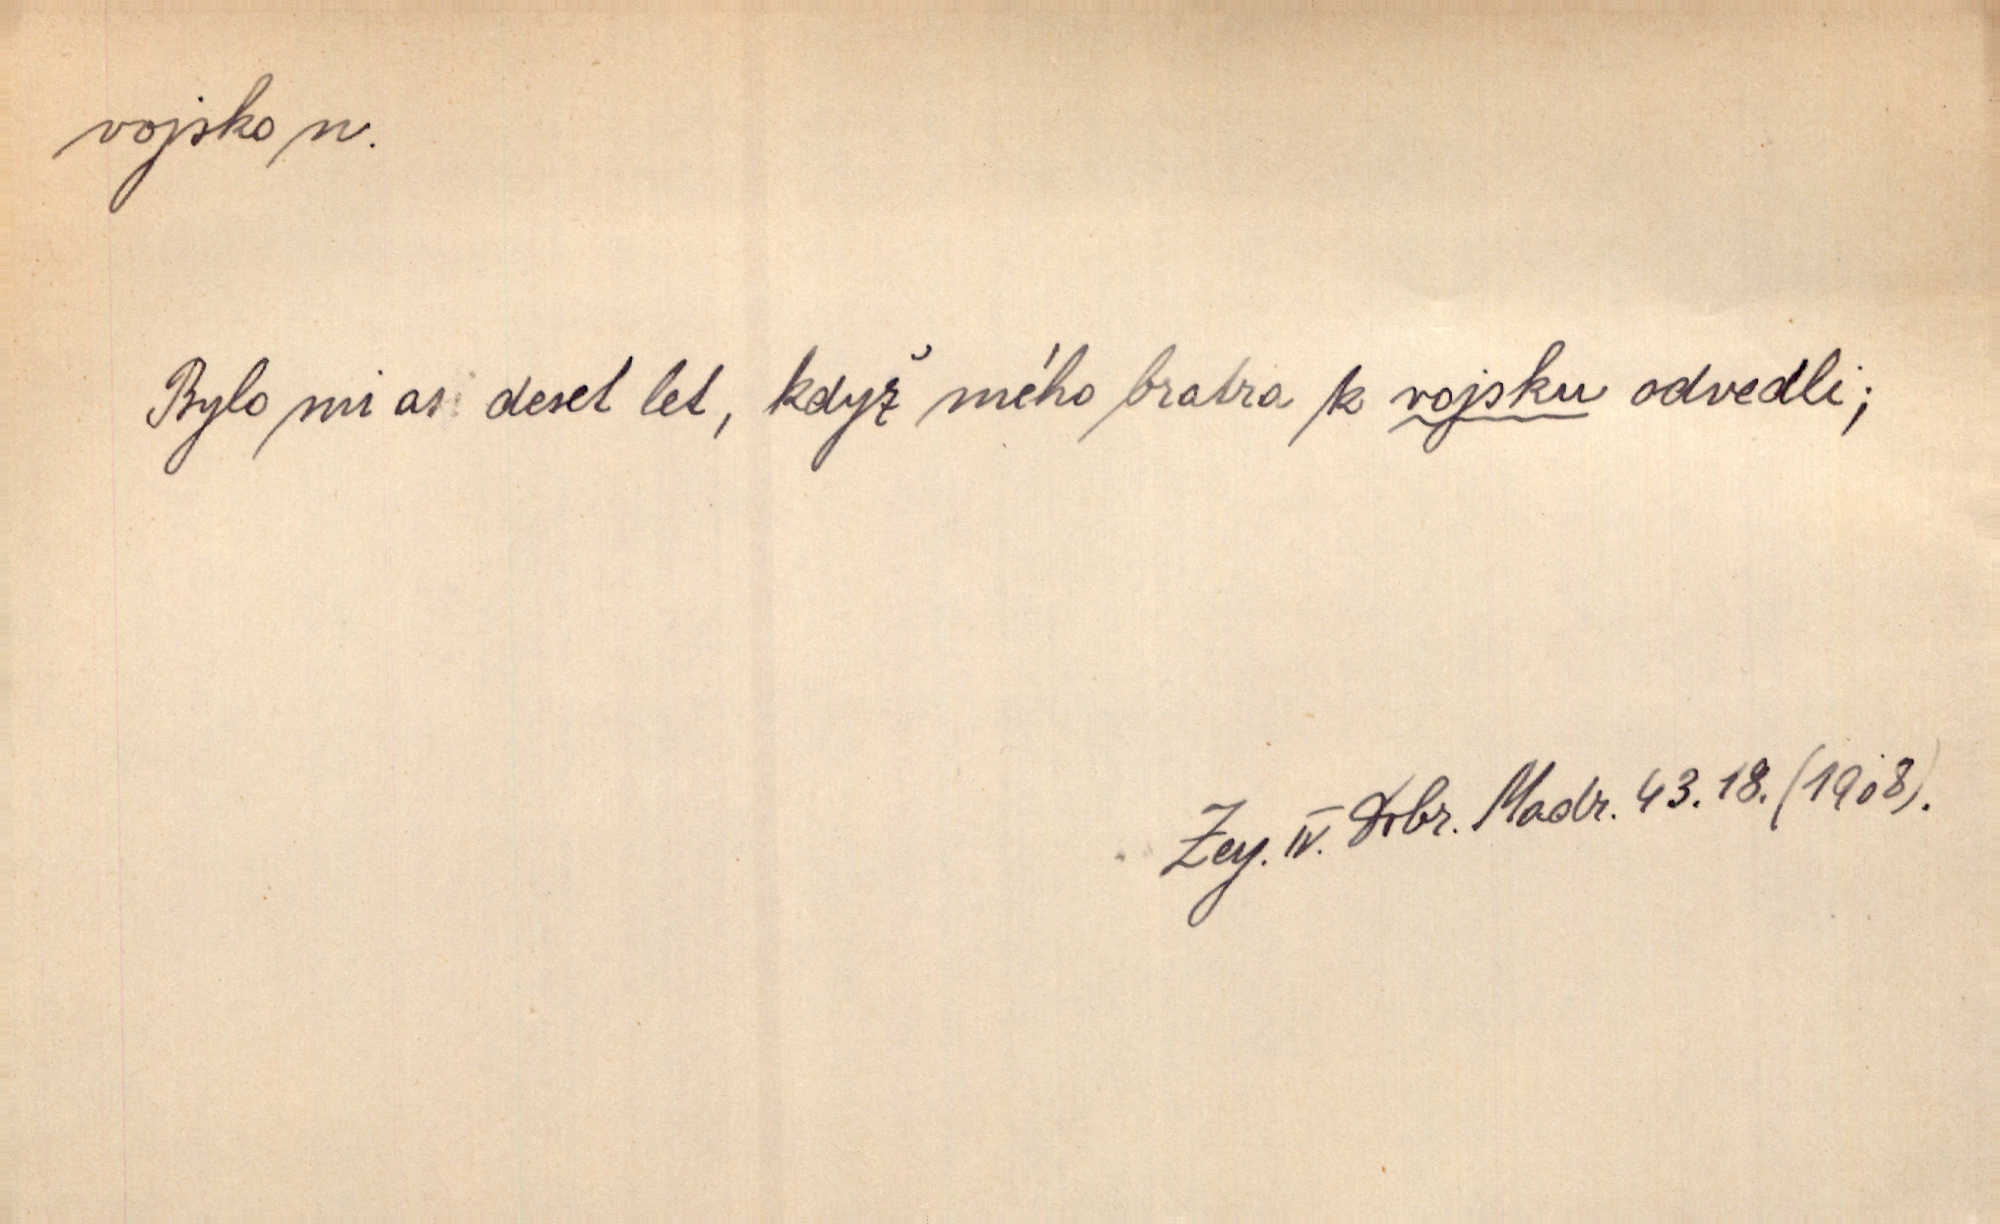 vojsko n.
Bylo mi asi deset let, když mého bratra k vojsku odvedli;
Zey. IV. Dobr. Madr. 43.18. (1908).